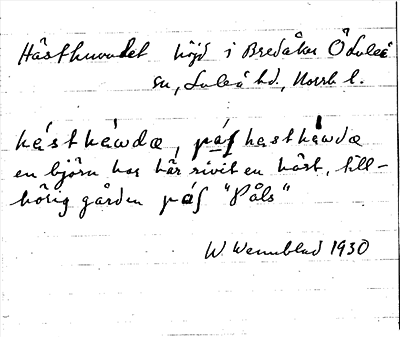 Hästhuvudet höjd i Bredåker Ö Luleå
sn, Luleå hd, Norrb l.
hásthǻwdæ, pá∫ hasthǻwdæ
en björn har här rivit en häst, till-
hörig gården på∫ "Påls"
W. Wennblad 1930